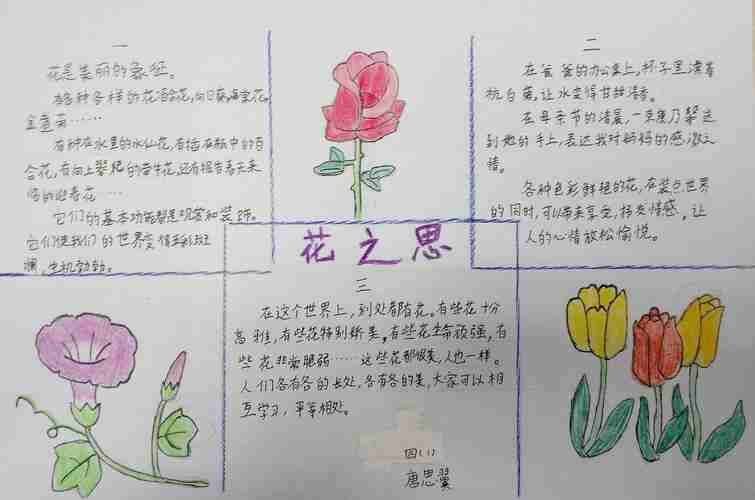 花之思
一
花是美丽的象征。
有各种各样的花:百合花,向日葵,海棠花,
金盏菊……
有种在水里的水仙花,有插在瓶中的百
合花,有向上攀爬的牵牛花,还有报告春天来
临的迎春花……
它们的基本功能都是观赏和装饰。
它们使我们的世界变得五彩斑
斓,生机勃勃。
二
在爸爸的办公桌上,杯子里漂着
杭白菊,让水变得甘甜清香。
在母亲节的清晨,一束康乃馨送
到她的手上,表达我对妈妈的感激之
情。
各种色彩鲜艳的花,在装点世界
的同时,可以带来享受,抒发情感,让
人的心情放松愉悦。
三
在这个世界上,到处都有花。有些花十分
高雅,有些花特别娇美,有些花生命顽强,有
些花非常脆弱……这些花都很美,人也一样。
人们各有各的长处,各有各的美,大家可以相
互学习,平等相处。
四(1)
唐思翼